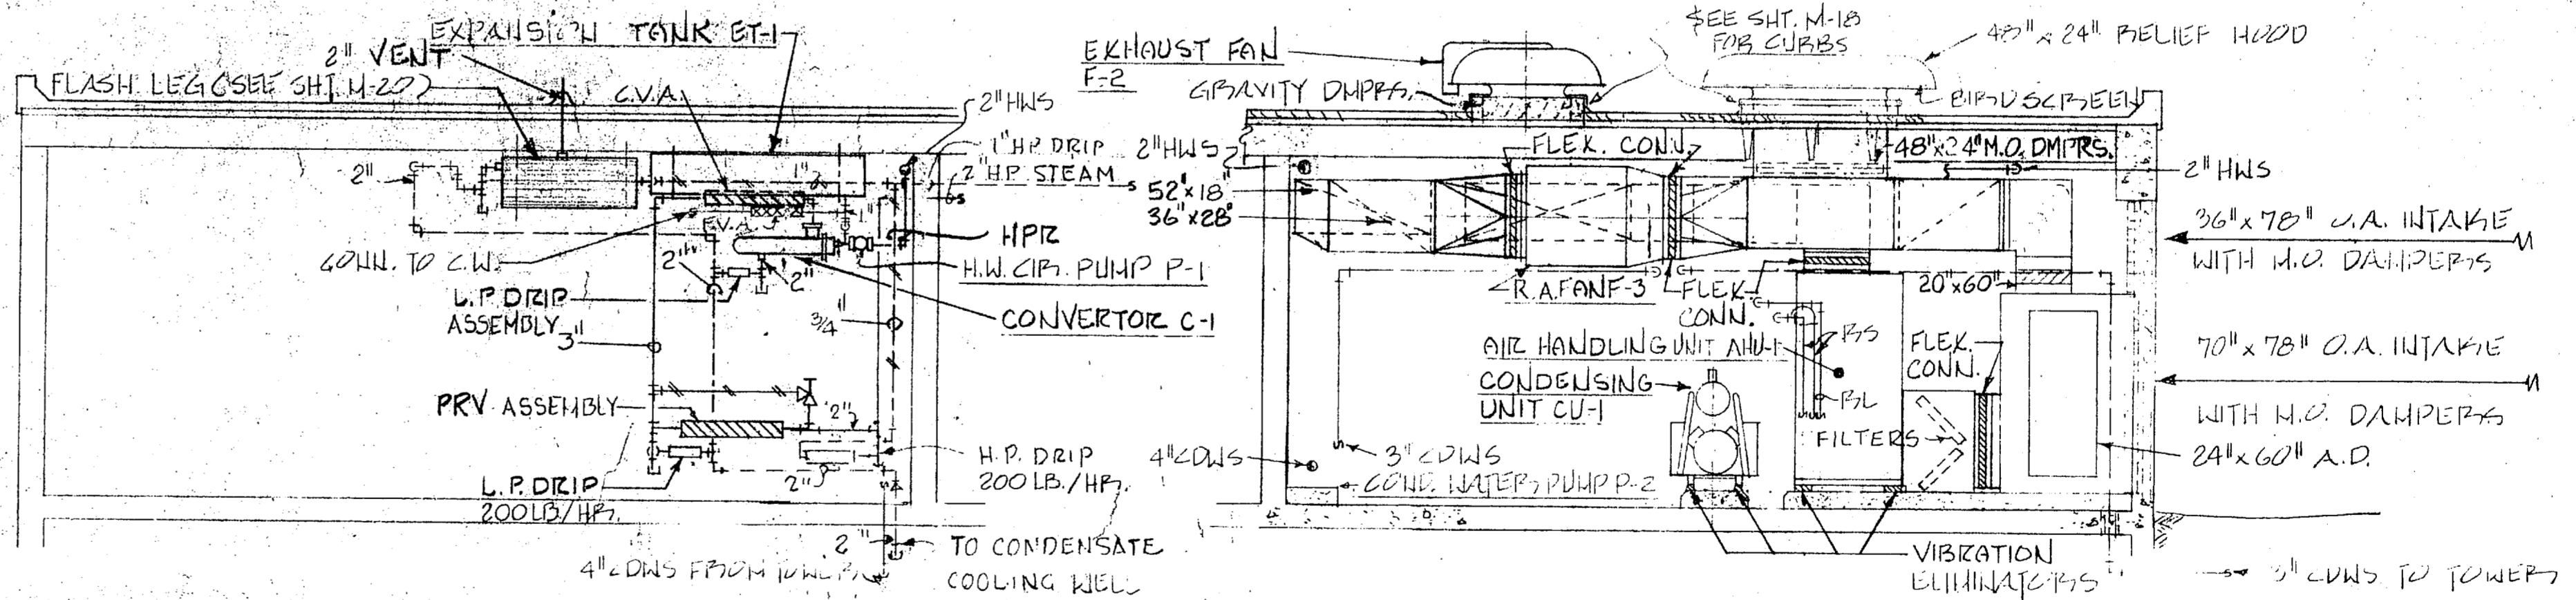 EXPANSION TANK ET-1
2" VENT
FLASH LEG (SEE SHT. M-20)
C.V.A.
2" HWS
1" HP DRIP
2" H.P. STEAM
S
2"
1"
1"
F.V.A.
HPR
CONN. TO C.W.
H.W. CIR. PUMP P-1
2"
2"
L.P. DRIP
ASSEMBLY
3"
3/4"
CONVERTOR C-1
PRV ASSEMBLY
2"
H.P. DRIP
200 LB./HR.
2"
L.P. DRIP
200 LB/HR.
2"
TO CONDENSATE
COOLING WELL
4" CDWS FROM TOWER
SEE SHT. M-18
FOR CURBS
48" x 24" RELIEF HOOD
EXHAUST FAN
F-2
GRAVITY DMPRS.
BIRDSCREEN
FLEX. CONN.
48"x24" M.O. DMPRS.
2" HWS
2" HWS
52"x18"
36"x28"
36" x 78" O.A. INTAKE
WITH M.O. DAMPERS
R.A. FAN F-3
FLEX.
CONN.
20"x60"
AIR HANDLING UNIT AHU-1
RS
FLEX.
CONN.
70" x 78" O.A. INTAKE
WITH M.O. DAMPERS
CONDENSING
UNIT CU-1
RL
FILTERS
24" x 60" A.D.
4" CDWS
3" CDWS
COND. WATER PUMP P-2
VIBRATION
ELIMINATORS
3" CDWS TO TOWER